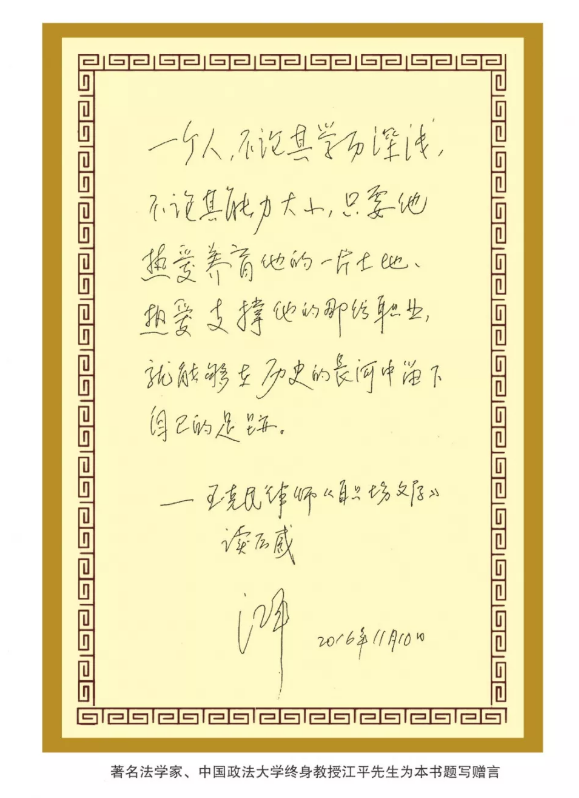 一个人，不论其学历深浅，
不论其能力大小，只要他
热爱养育他的一片土地、
热爱支撑他的那份职业，
就能够在历史的长河中留下
自己的足迹。
——王克民律师《职场文存》
读后感
江平 2016年11月10日
著名法学家、中国政法大学终身教授江平先生为本书题写赠言